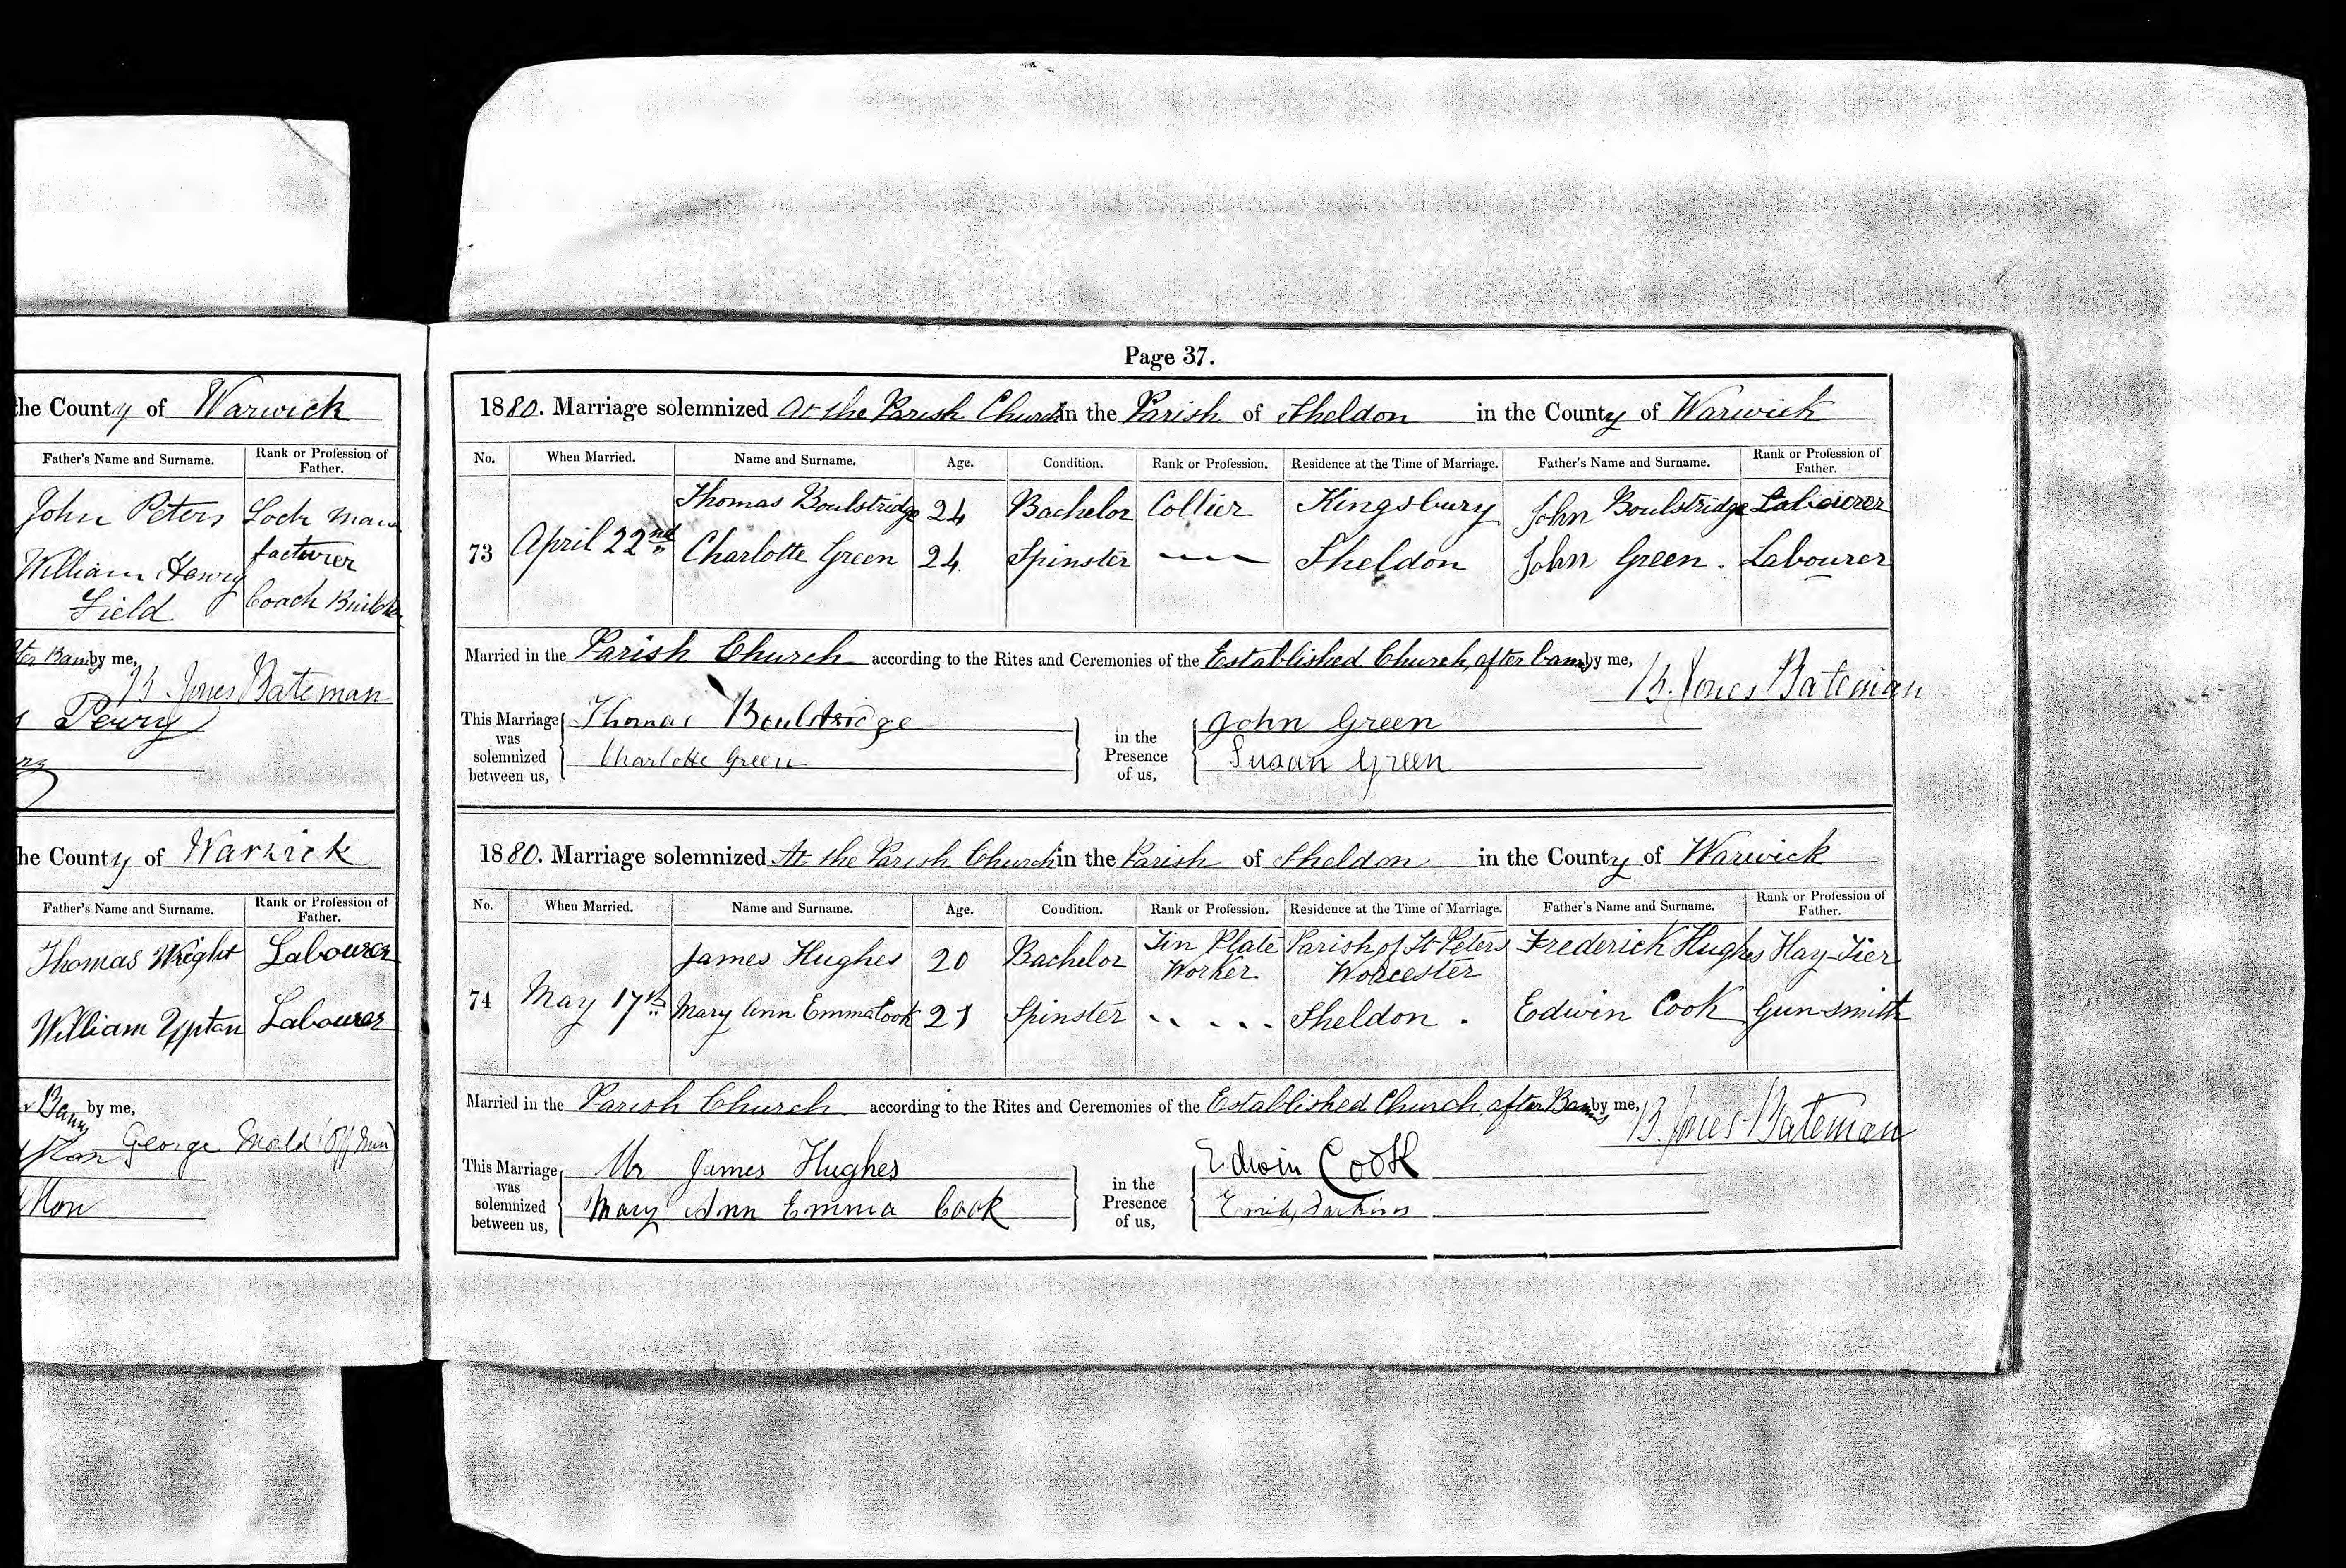 the County of Warwick
Father's Name and Surname. Rank or Profession of Father.
John Peters Lock manu
facturer
William Henry
Field Coach Builder
after Banns by me,
B. Jones Bateman
Perry
he County of Warwick
Father's Name and Surname. Rank or Profession of Father.
Thomas Wright Labourer
William Upton Labourer
Banns by me,
George
Page 37.
1880. Marriage solemnized At the Parish Church in the Parish of Sheldon in the County of Warwick
No. When Married. Name and Surname. Age. Condition. Rank or Profession. Residence at the Time of Marriage. Father's Name and Surname. Rank or Profession of Father.
Thomas Boulstridge 24 Bachelor Collier Kingsbury John Boulstridge Labourer
73 April 22nd Charlotte Green 24. Spinster — Sheldon John Green. Labourer
Married in the Parish Church according to the Rites and Ceremonies of the Established Church, after banns by me,
B. Jones Bateman
This Marriage was solemnized between us, Thomas Boulstridge in the Presence of us, John Green
Charlotte Green Susan Green
1880. Marriage solemnized At the Parish Church in the Parish of Sheldon in the County of Warwick
No. When Married. Name and Surname. Age. Condition. Rank or Profession. Residence at the Time of Marriage. Father's Name and Surname. Rank or Profession of Father.
James Hughes 20 Bachelor Tin Plate Worker Parish of St Peters Worcester Frederick Hughes Hay-Tier
74 May 17th Mary Ann Emma Cook 21 Spinster Sheldon. Edwin Cook Gun-smith
Married in the Parish Church according to the Rites and Ceremonies of the Established Church, after Banns by me,
B. Jones-Bateman
This Marriage was solemnized between us, Mr James Hughes in the Presence of us, Edwin Cook
Mary Ann Emma Cook